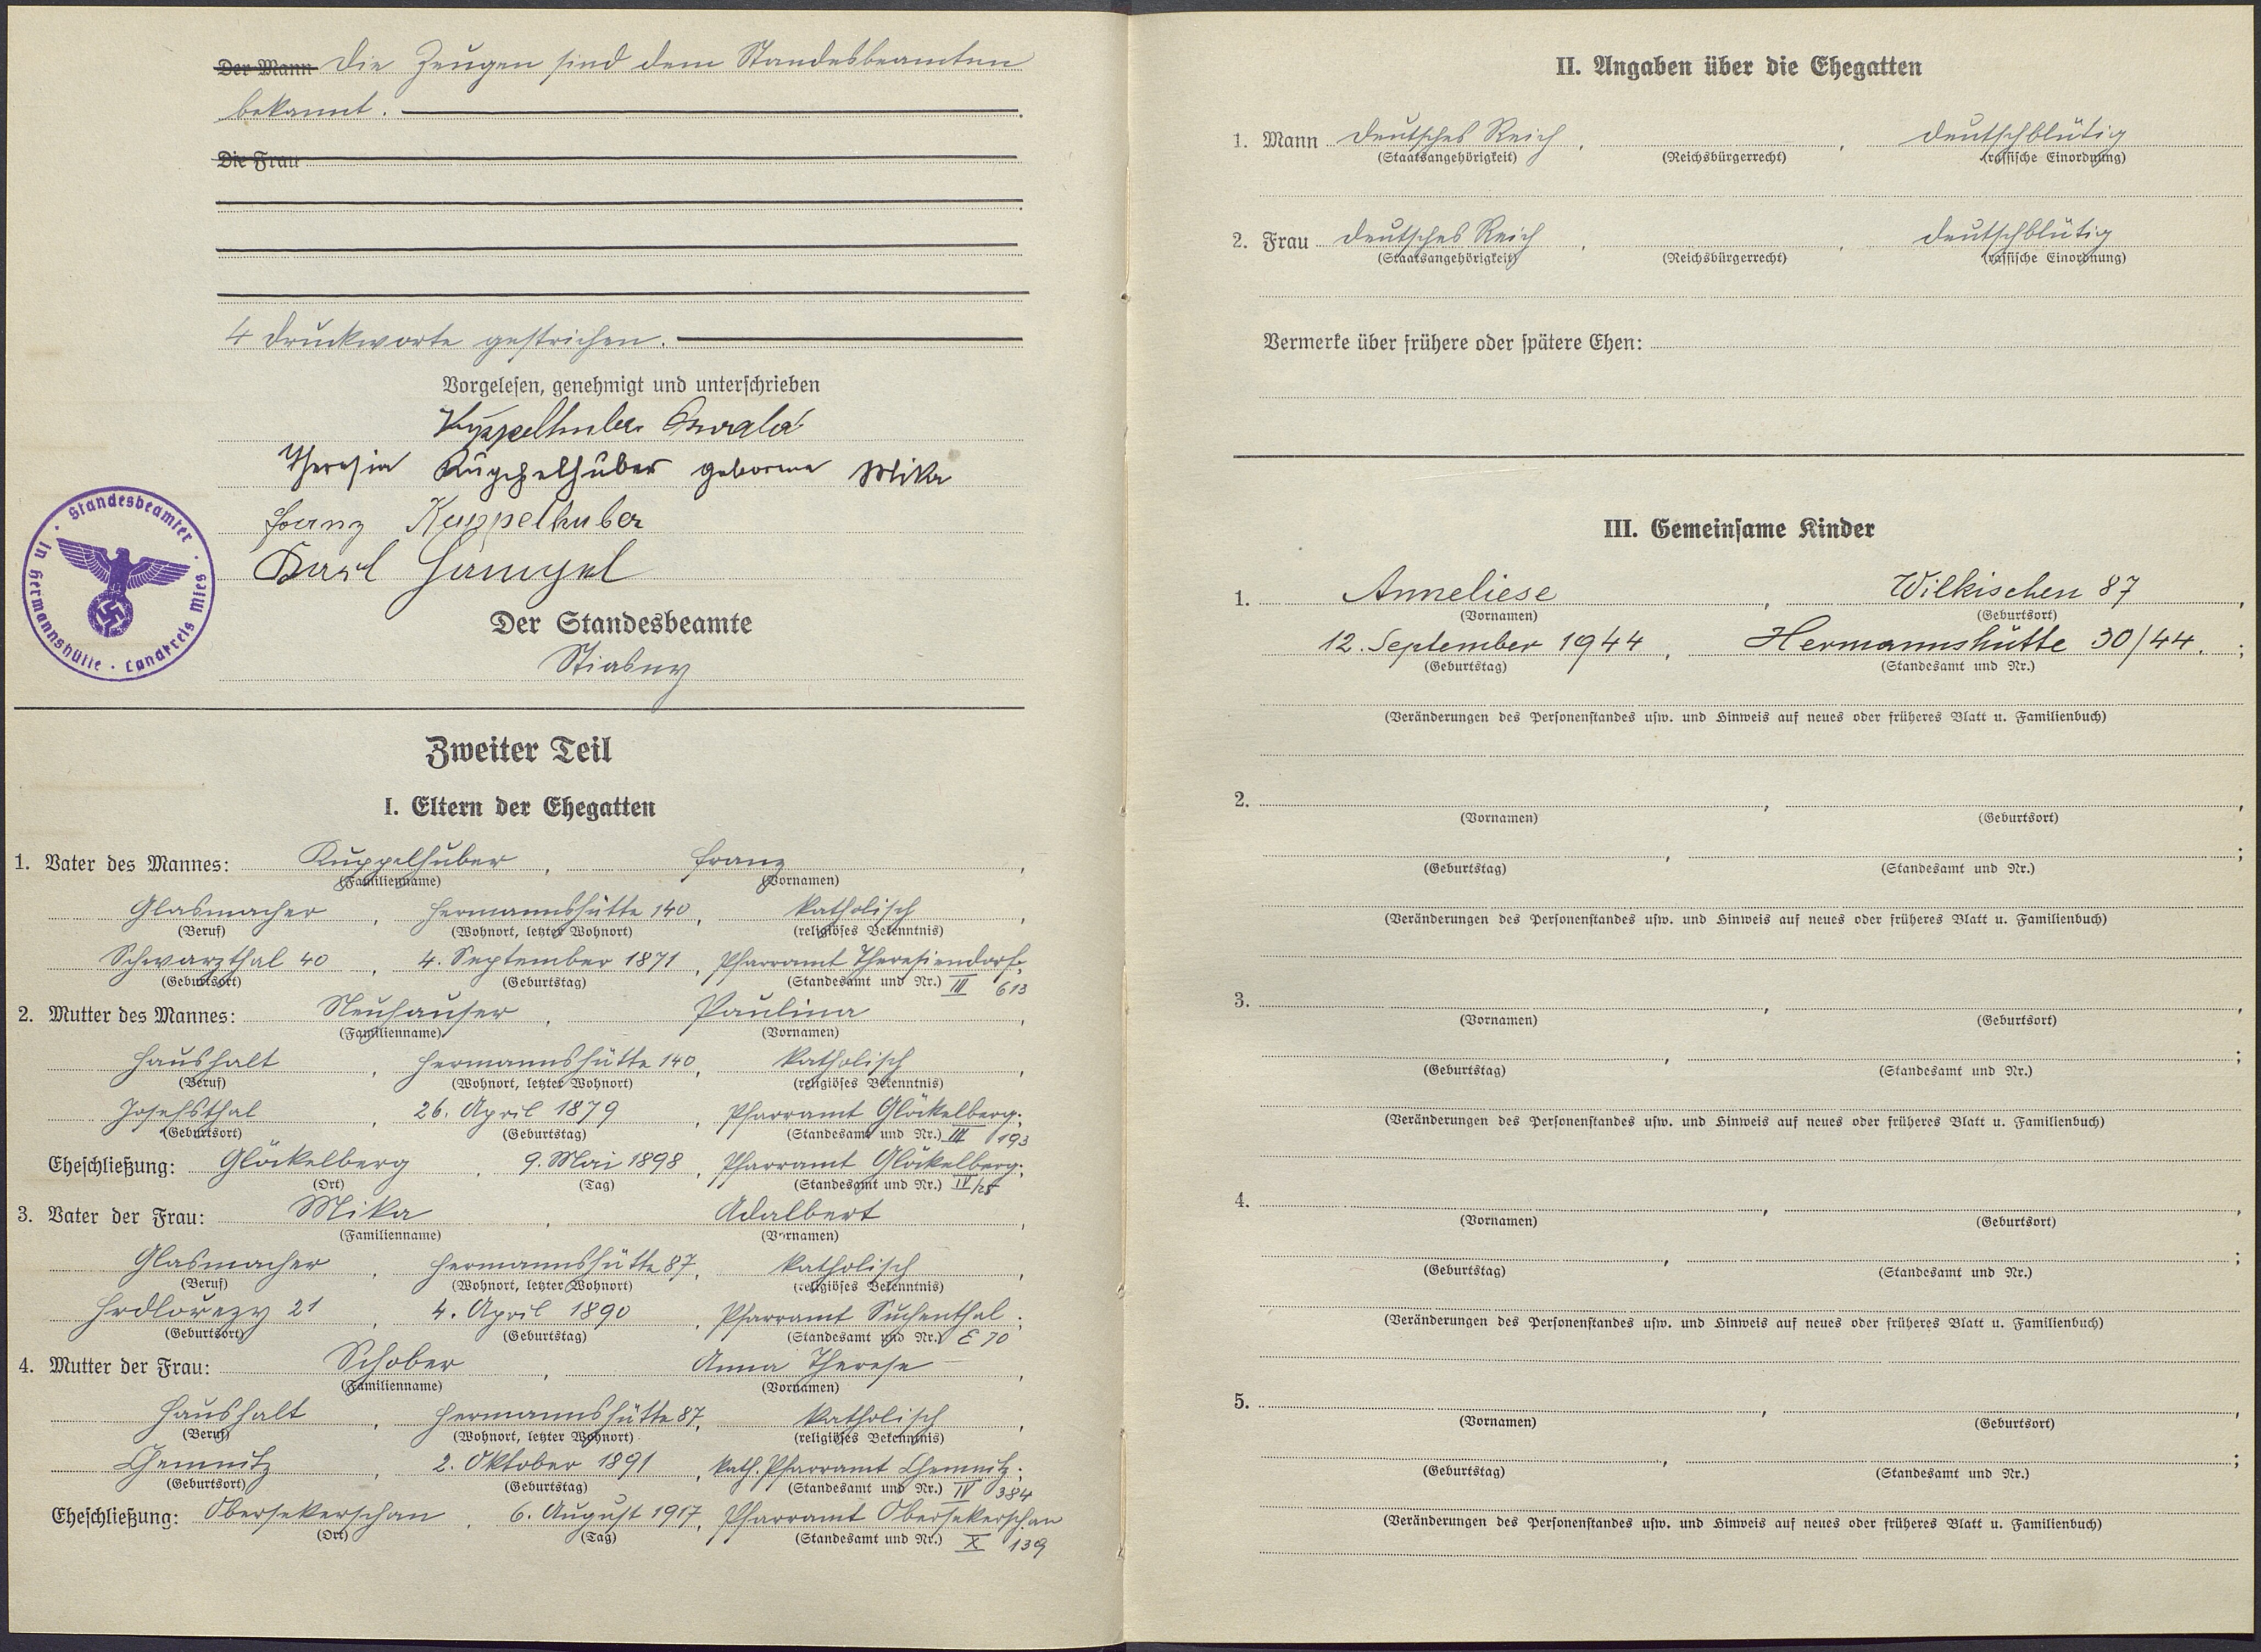 Der Mann Die Zeugen sind dem Standesbeamten
bekannt.
Die Frau
4 Druckworte gestrichen.
Vorgelesen, genehmigt und unterschrieben
Kuppelhuber Oswald
Theresia Kuppelhuber geborene Mika
Franz Kuppelhuber
Karl
Standesbeamter · in Hermannshütte · Landkreis Mies ·
Der Standesbeamte
Stiasny
Zweiter Teil
I. Eltern der Ehegatten
1. Vater des Mannes: Kuppelhuber, Franz,
(Familienname) (Vornamen)
Glasmacher, Hermannshütte 140, katholisch,
(Beruf) (Wohnort, letzter Wohnort) (religiöses Bekenntnis)
Schwarzthal 40, 4. September 1871, Pfarramt Theresiendorf;
(Geburtsort) (Geburtstag) (Standesamt und Nr.) III 613
2. Mutter des Mannes: Neuhauser, Paulina,
(Familienname) (Vornamen)
Haushalt, Hermannshütte 140, katholisch,
(Beruf) (Wohnort, letzter Wohnort) (religiöses Bekenntnis)
Josefsthal, 26. April 1879, Pfarramt Glöckelberg;
(Geburtsort) (Geburtstag) (Standesamt und Nr.) III 193
Eheschließung: Glöckelberg, 9. Mai 1898, Pfarramt Glöckelberg;
(Ort) (Tag) (Standesamt und Nr.) IV/25
3. Vater der Frau: Mika, Adalbert,
(Familienname) (Vornamen)
Glasmacher, Hermannshütte 87, katholisch,
(Beruf) (Wohnort, letzter Wohnort) (religiöses Bekenntnis)
Hrdlorezy 21, 4. April 1890, Pfarramt Suchenthal;
(Geburtsort) (Geburtstag) (Standesamt und Nr.) E 70
4. Mutter der Frau: Schober, Anna Therese,
(Familienname) (Vornamen)
Haushalt, Hermannshütte 87, katholisch,
(Beruf) (Wohnort, letzter Wohnort) (religiöses Bekenntnis)
Chemnitz, 2. Oktober 1891, kath. Pfarramt Chemnitz;
(Geburtsort) (Geburtstag) (Standesamt und Nr.) IV 384
Eheschließung: Obersekerschan, 6. August 1917, Pfarramt Obersekerschan
(Ort) (Tag) (Standesamt und Nr.) X 139
II. Angaben über die Ehegatten
1. Mann Deutsches Reich, , deutschblütig
(Staatsangehörigkeit) (Reichsbürgerrecht) (rassische Einordnung)
2. Frau Deutsches Reich, , deutschblütig
(Staatsangehörigkeit) (Reichsbürgerrecht) (rassische Einordnung)
Vermerke über frühere oder spätere Ehen:
III. Gemeinsame Kinder
1. Anneliese, Wilkischen 87,
(Vornamen) (Geburtsort)
12. September 1944, Hermannshütte 30/44.;
(Geburtstag) (Standesamt und Nr.)
(Veränderungen des Personenstandes usw. und Hinweis auf neues oder früheres Blatt u. Familienbuch)
2. , ,
(Vornamen) (Geburtsort)
, ;
(Geburtstag) (Standesamt und Nr.)
(Veränderungen des Personenstandes usw. und Hinweis auf neues oder früheres Blatt u. Familienbuch)
3. , ,
(Vornamen) (Geburtsort)
, ;
(Geburtstag) (Standesamt und Nr.)
(Veränderungen des Personenstandes usw. und Hinweis auf neues oder früheres Blatt u. Familienbuch)
4. , ,
(Vornamen) (Geburtsort)
, ;
(Geburtstag) (Standesamt und Nr.)
(Veränderungen des Personenstandes usw. und Hinweis auf neues oder früheres Blatt u. Familienbuch)
5. , ,
(Vornamen) (Geburtsort)
, ;
(Geburtstag) (Standesamt und Nr.)
(Veränderungen des Personenstandes usw. und Hinweis auf neues oder früheres Blatt u. Familienbuch)